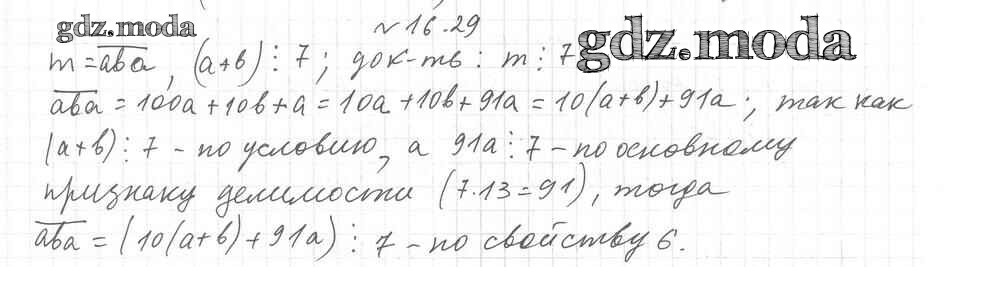 gdz.moda
№ 16.29
gdz.moda
m = aba, (a+b) ⋮ 7; док-ть: m ⋮ 7
aba = 100a + 10b + a = 10a + 10b + 91a = 10(a+b) + 91a; так как
(a+b) ⋮ 7 – по условию, а 91a ⋮ 7 – по основному
признаку делимости (7·13 = 91), тогда
aba = (10(a+b) + 91a) ⋮ 7 – по свойству 6.